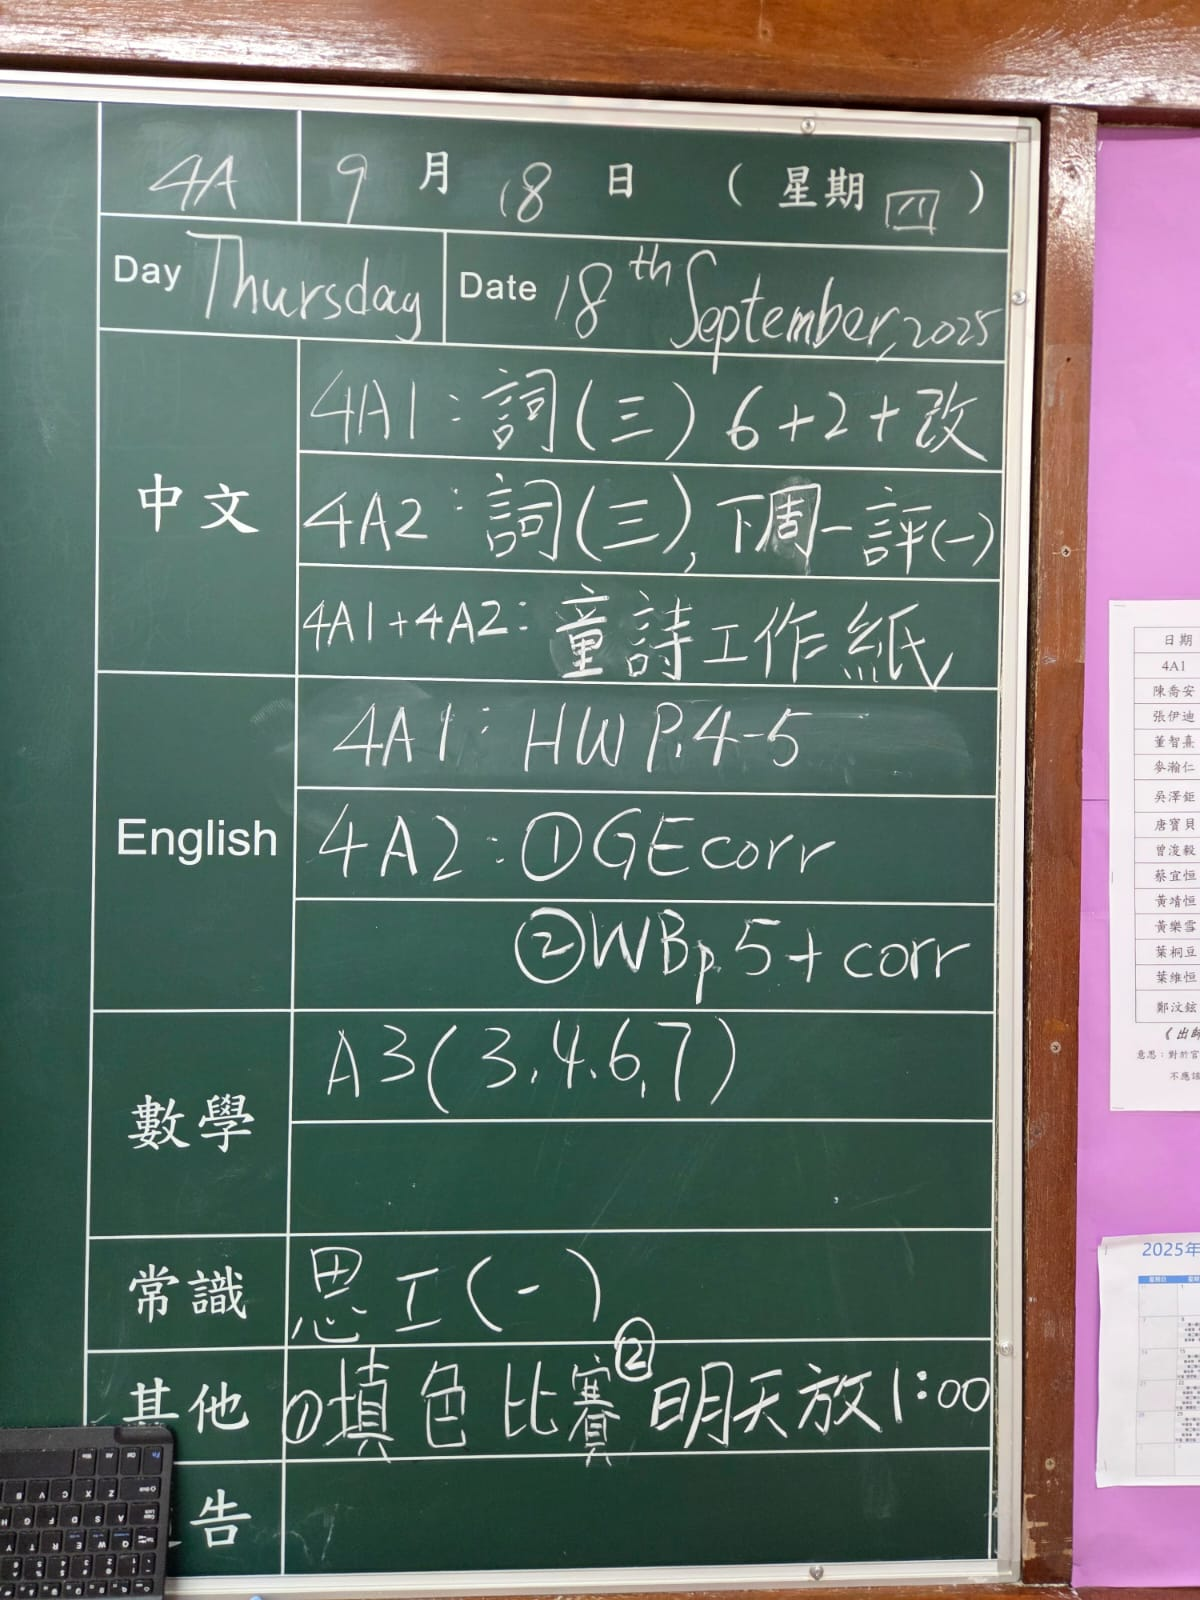 4A 9 月 18 日 （ 星期 四 ）
Day Thursday Date 18th September, 2025
中文
4A1 : 詞(三) 6+2+改
4A2 : 詞(三), 下周一評(一)
4A1+4A2 : 童詩工作紙
English
4A1 : HW P.4-5
4A2 : ①GE corr
②WB p.5 + corr
數學
A3 (3,4,6,7)
常識
思工(一)
其他
①填色比賽 ②明天放1:00
告
日期
4A1
陳喬安
張伊迪
董智熹
麥瀚仁
吳澤鉅
唐寶貝
曾浚毅
蔡宜恒
黃靖恒
黃樂雪
葉桐豆
葉維恒
鄭汶鉉
《出師
意思：對於官
不應該
2025年